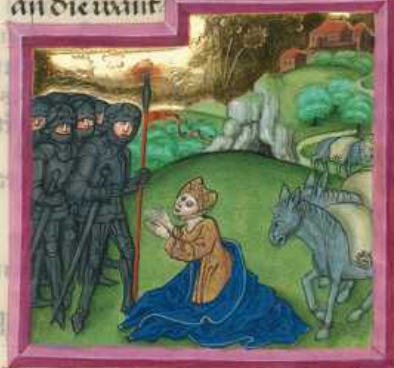 an die want